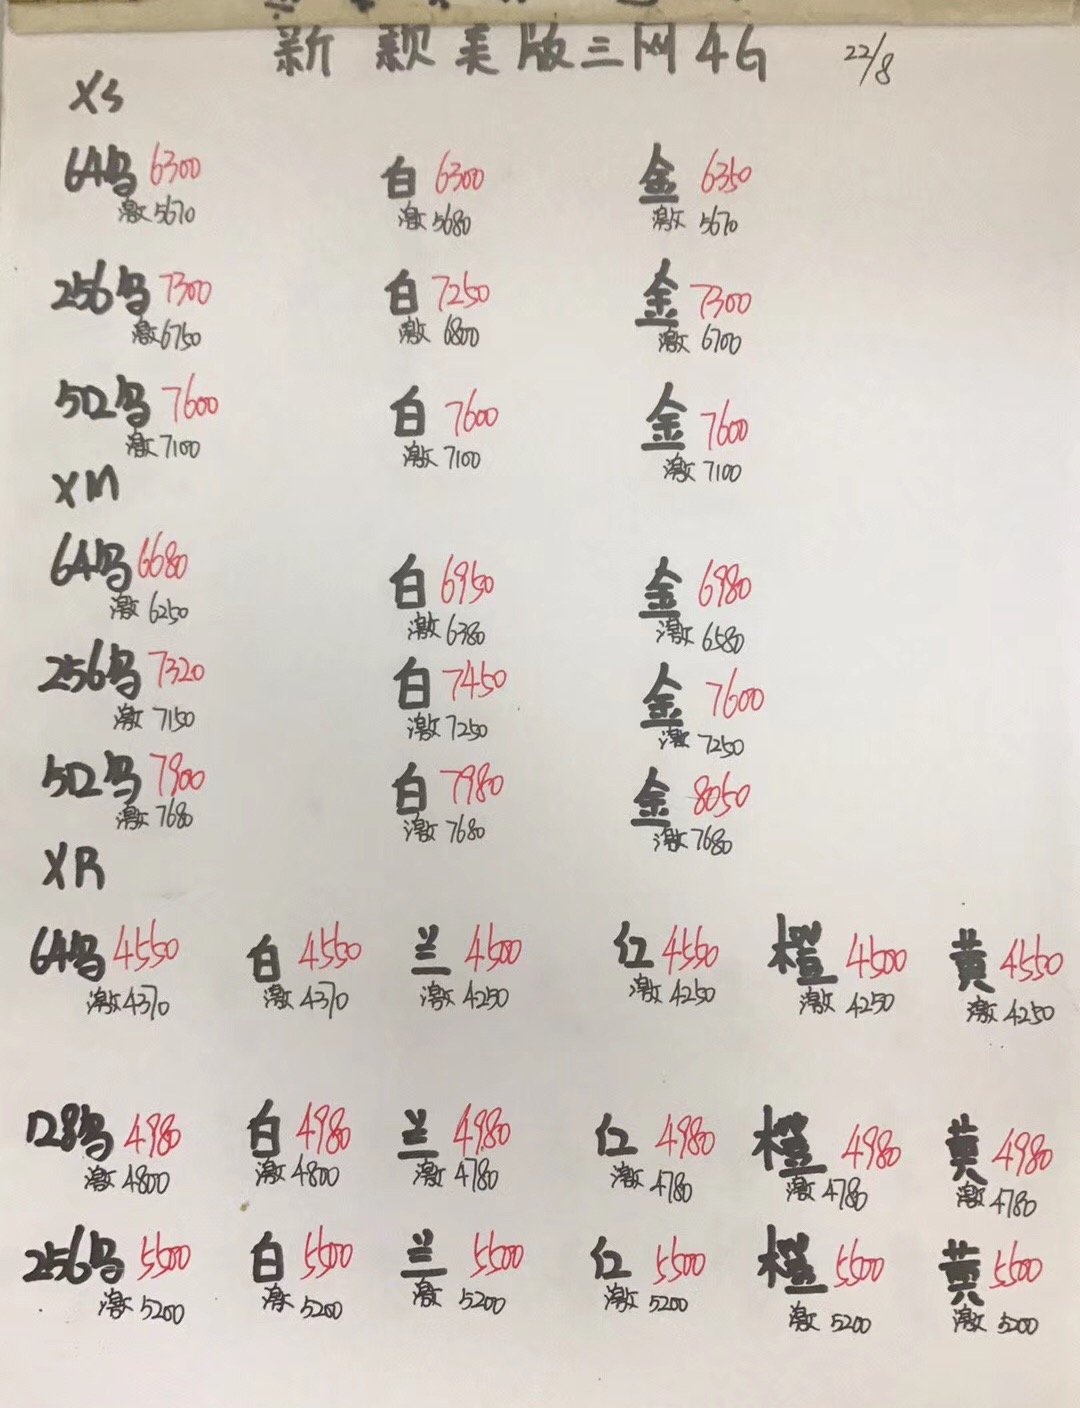 新款美版三网4G 22/8
XS
64乌 6300 白 6300 金 6350
激5670 激 5680 激 5670
256乌 7300 白 7250 金 7300
激6750 激 6800 激 6700
512乌 7600 白 7600 金 7600
激7100 激 7100 激 7100
XM
64乌 6680 白 6950 金 6980
激 6250 激 6380 激 6580
256乌 7320 白 7450 金 7600
激 7150 激 7250 激 7250
512乌 7900 白 7980 金 8050
激 7680 激 7680 激 7680
XR
64乌 4550 白 4550 兰 4500 红 4550 橙 4500 黄 4550
激4370 激 4370 激 4250 激 4250 激 4250 激 4250
128乌 4980 白 4980 兰 4980 红 4980 橙 4980 黄 4980
激 4800 激 4800 激 4780 激 4780 激 4780 激 4780
256乌 5500 白 5500 兰 5500 红 5500 橙 5500 黄 5500
激 5200 激 5200 激 5200 激 5200 激 5200 激 5200